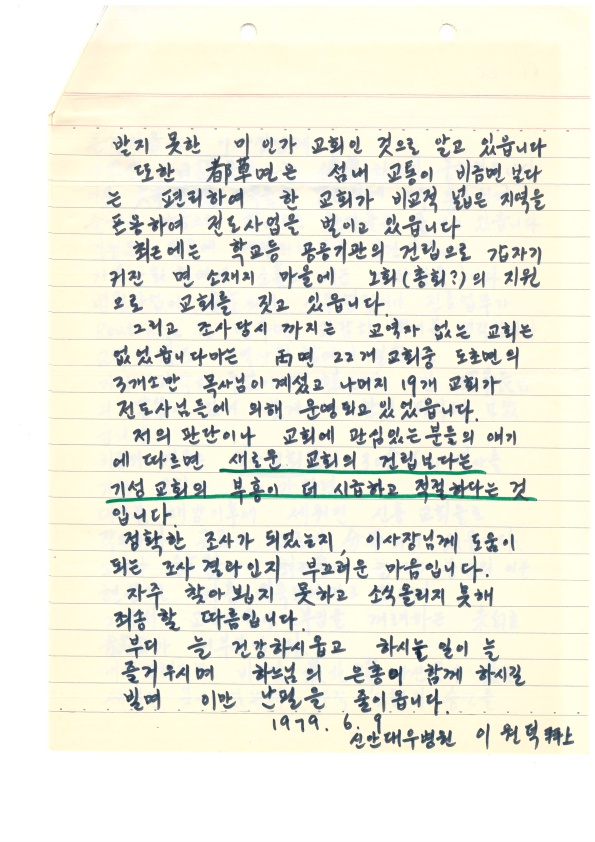 받지 못한 미인가 교회인 것으로 알고 있읍니다
또한 都草면은 섬내 교통이 비금면보다
는 편리하여 한 교회가 비교적 넓은 지역을
포용하여 전도사업을 벌이고 있읍니다
최근에는 학교등 공공기관의 건립으로 갑자기
커진 면 소재지 마을에 노회(총회?)의 지원
으로 교회를 짓고 있읍니다.
그리고 조사당시 까지는 교역자 없는 교회는
없었읍니다마는 両면 22개 교회중 도초면의
3개소만 목사님이 계셨고 나머지 19개 교회가
전도사님들에 의해 운영되고 있었읍니다.
저의 판단이나 교회에 관심있는 분들의 얘기
에 따르면 새로운 교회의 건립보다는
기성 교회의 부흥이 더 시급하고 적절하다는 것
입니다.
정확한 조사가 되었는지, 이사장님께 도움이
되는 조사 결과인지 부끄러운 마음입니다.
자주 찾아 뵙지 못하고 소식올리지 못해
죄송 할 따름입니다.
부디 늘 건강하시옵고 하시는 일이 늘
즐거우시며 하느님의 은총이 함께 하시길
빌며 이만 난필을 줄이옵니다.
1979. 6. 9
신안대우병원 이 원덕 拜上